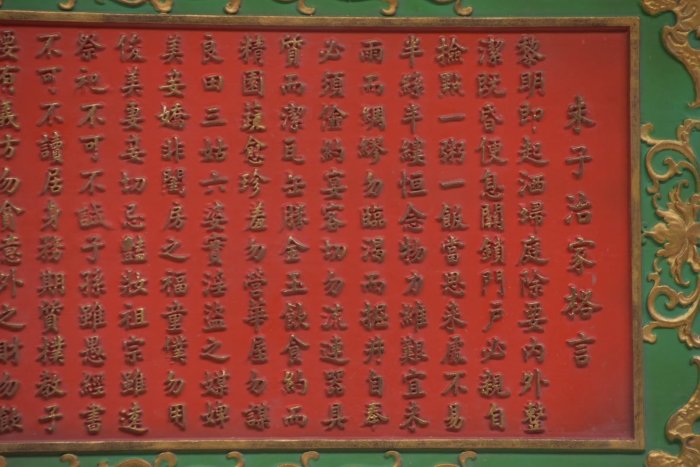 朱子治家格言
黎明即起洒埽庭除要內外整
潔既昏便息關鎖門戶必親自
檢點一粥一飯當思來處不易
半絲半縷恒念物力維艱宜未
雨而綢繆勿臨渴而掘井自奉
必須儉約宴客切勿流連器具
質而潔瓦缶勝金玉飲食約而
精園蔬愈珍羞勿營華屋勿謀
良田三姑六婆實淫盜之媒婢
美妾嬌非閨房之福童僕勿用
佐美妻妾切忌豔妝祖宗雖遠
祭祀不可不誠子孫雖愚經書
不可不讀居身務期質樸教子
要有義方勿貪意外之財勿飲